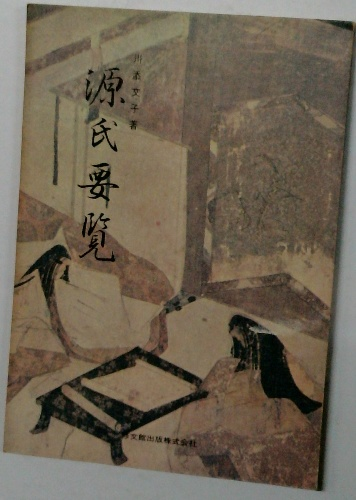 源氏要覧
川添文子著
文館出版株式会社